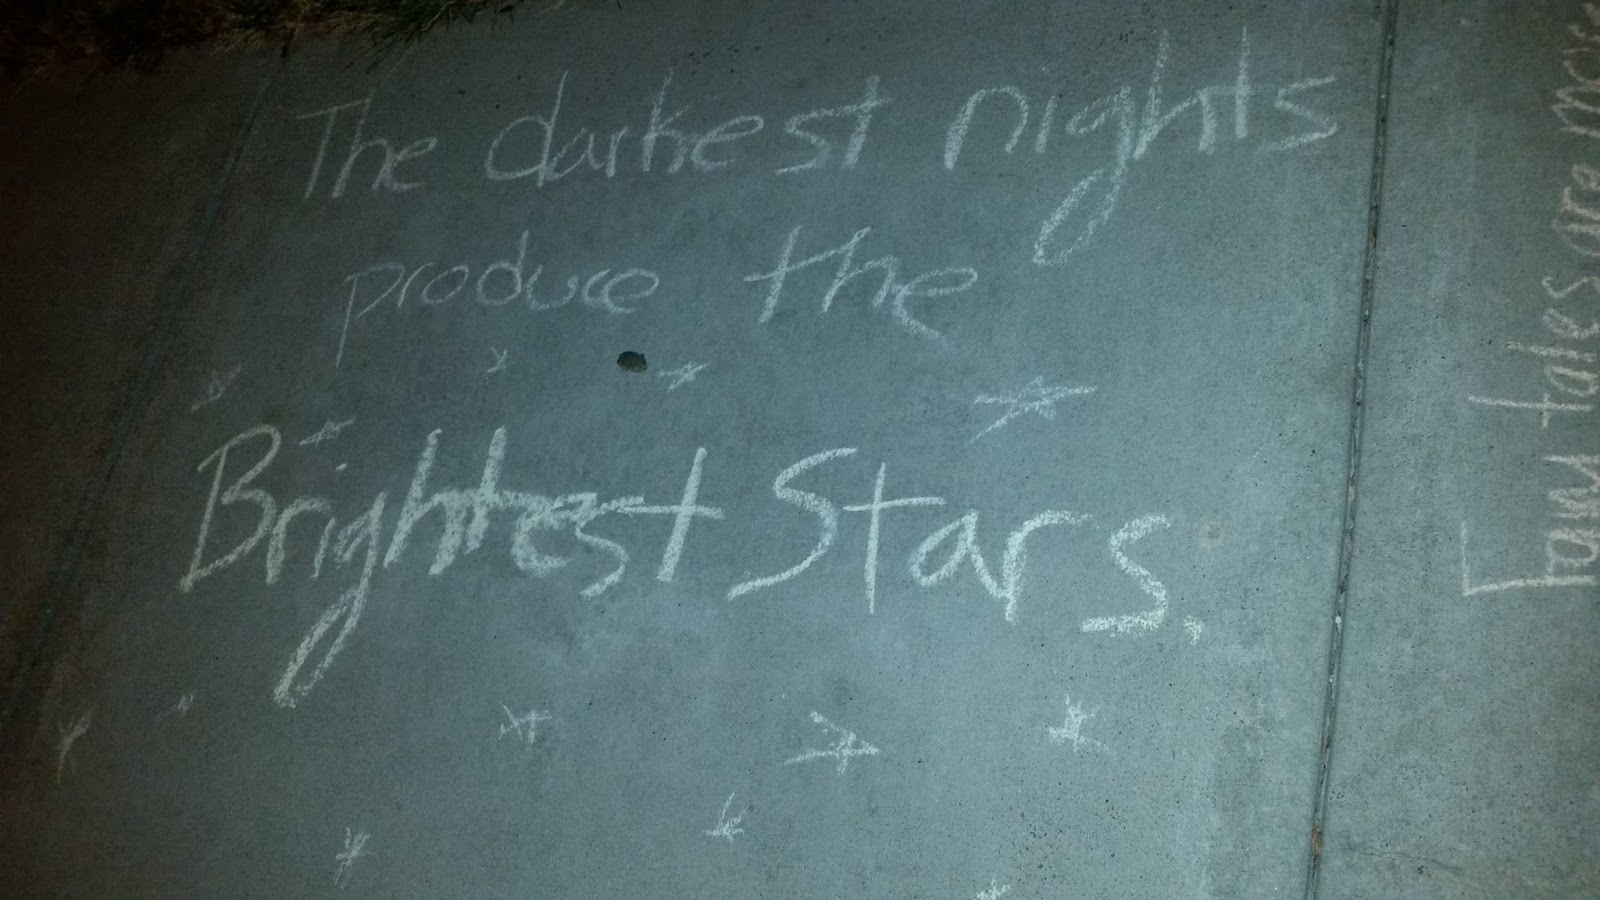 The darkest nights
produce the
Brightest Stars.
Fairy tales are more